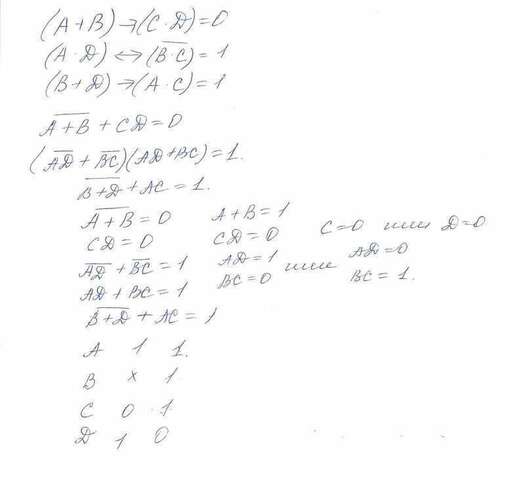 (A+B)→(C·D)=0
(A·D)↔(B̅·̅C̅)=1
(B+D)→(A·C)=1
A̅+̅B̅ + CD=0
(A̅D̅ + B̅C̅)(AD+BC)=1.
B̅+̅D̅ + AC = 1.
A̅+̅B̅ = 0 A+B=1
CD=0 CD=0 C=0 или D=0
A̅D̅ + B̅C̅ = 1 AD=1 или AD=0
AD+BC=1 BC=0 BC=1.
B̅+̅D̅ + AC = 1
A 1 1.
B x 1
C 0 1
D 1 0